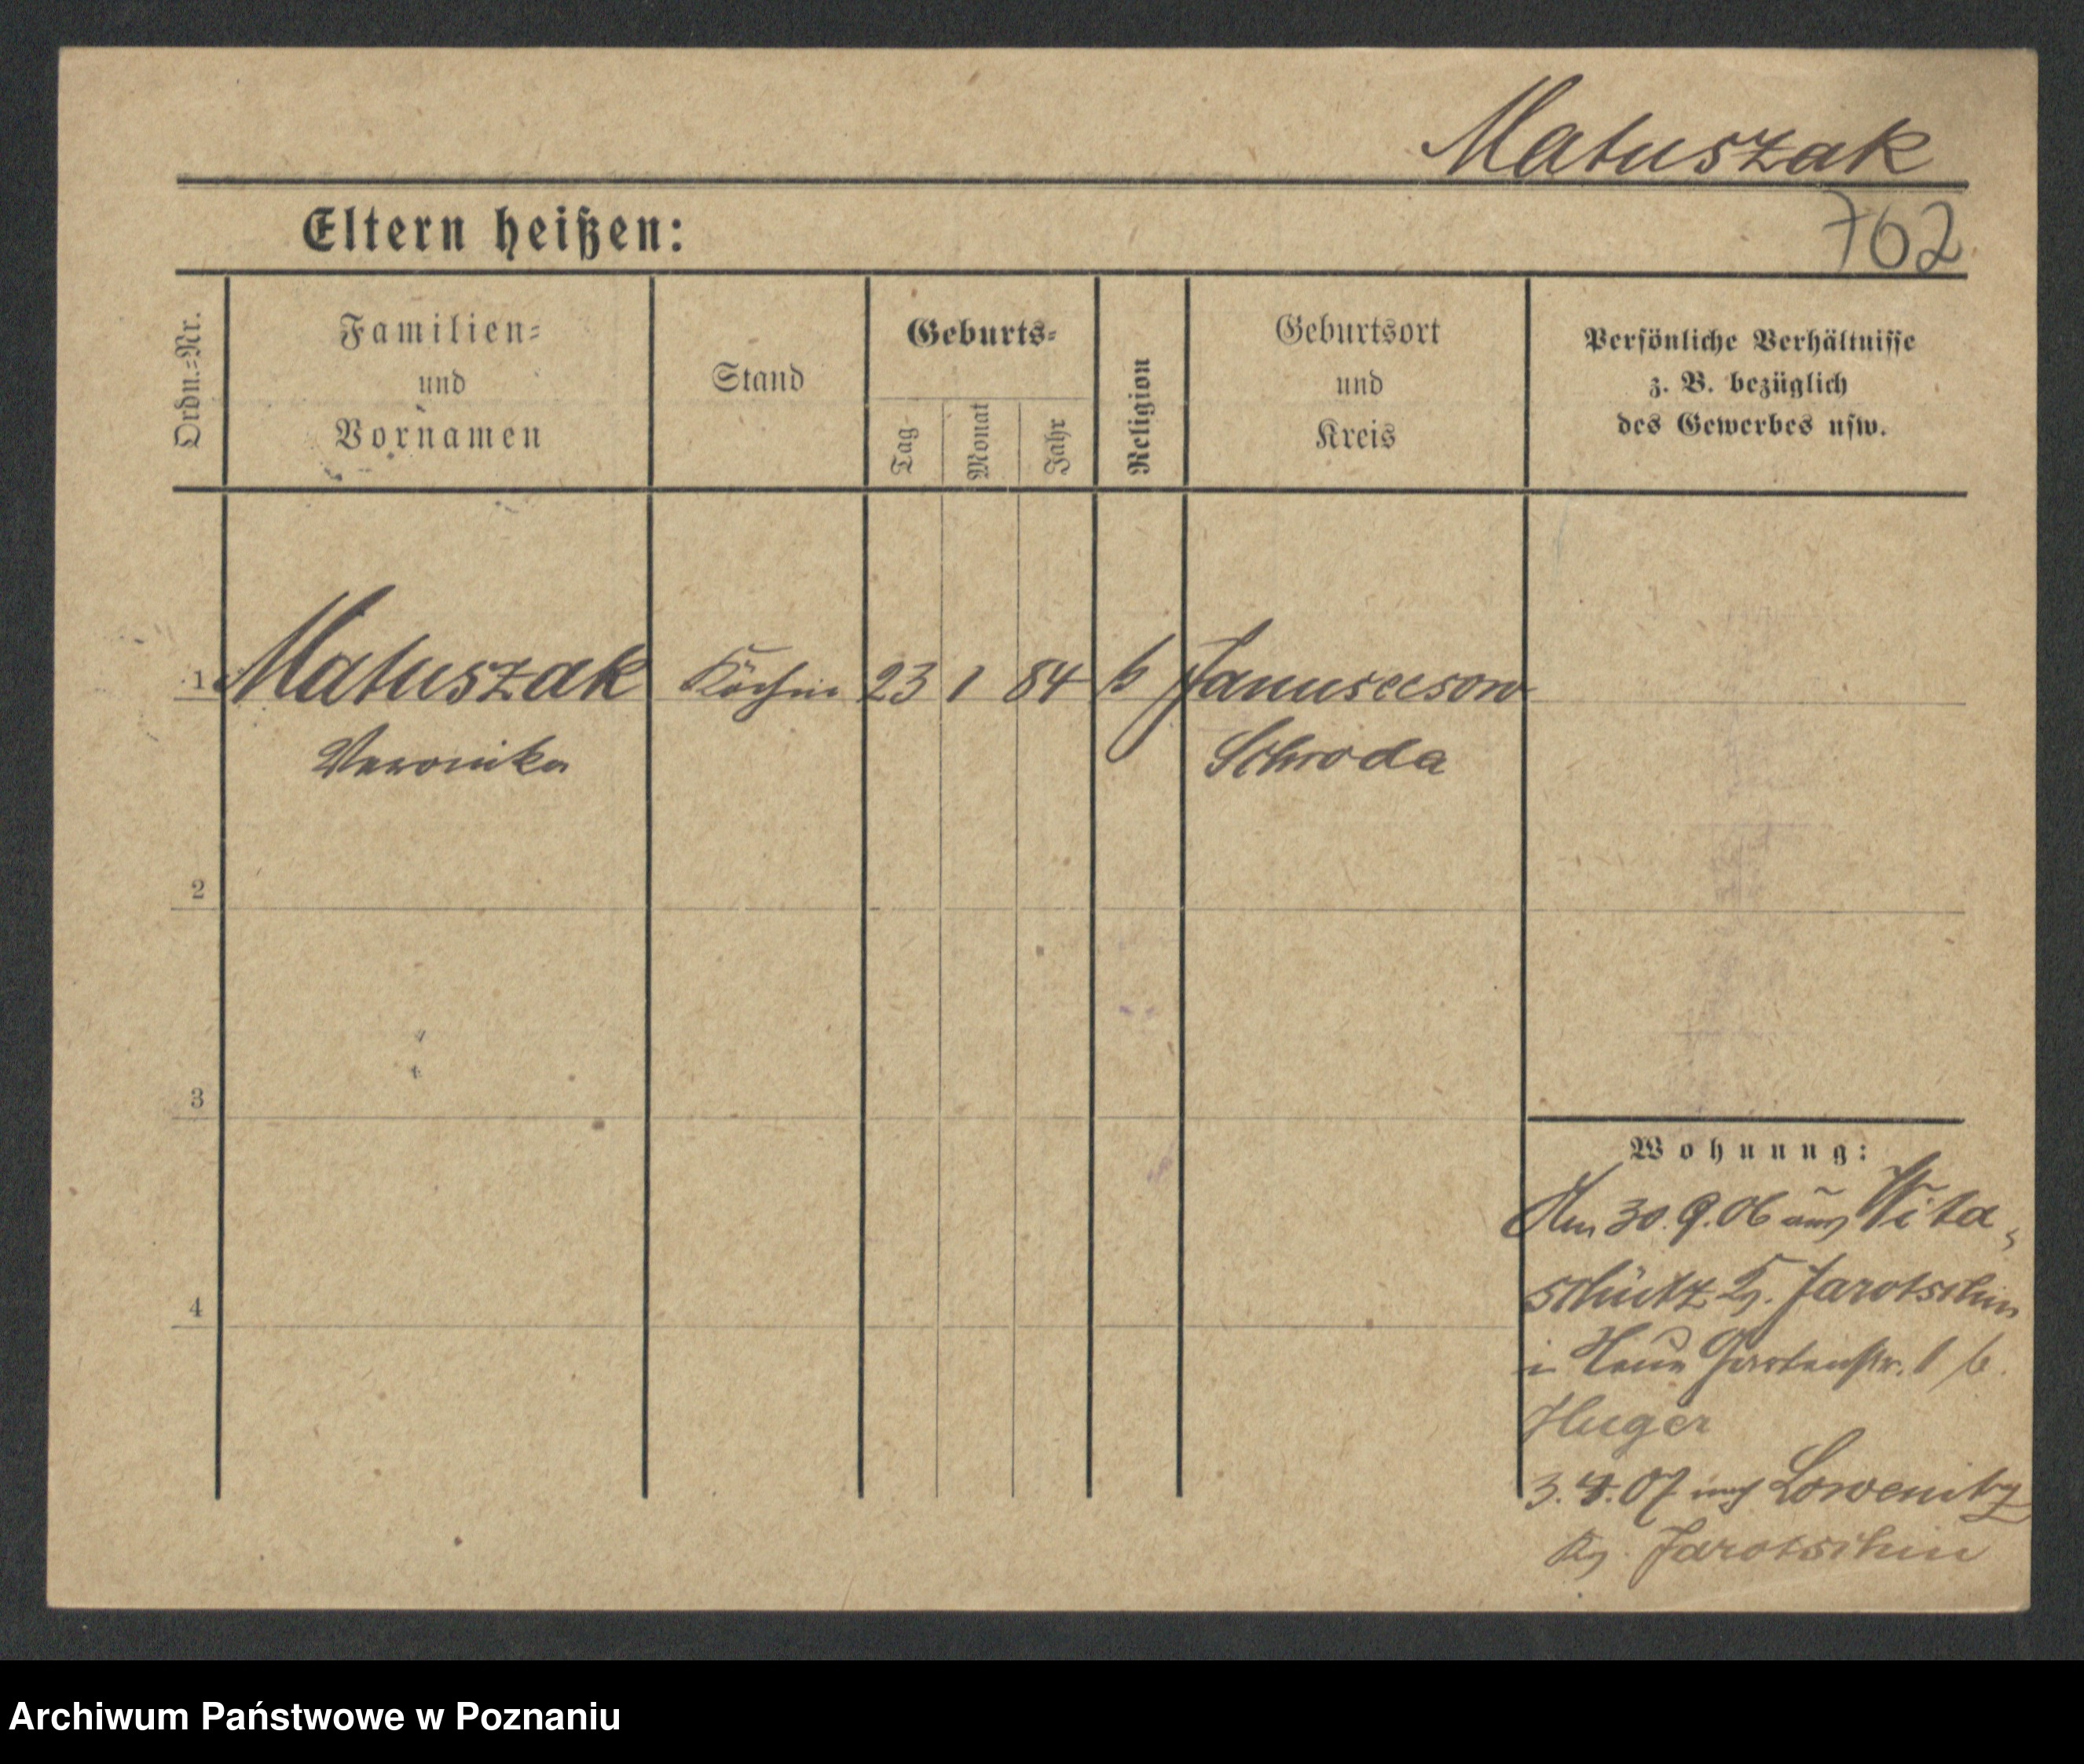 Matuszak
Eltern heißen:
762
Ordn.=Nr.
Familien=
und
Vornamen
Stand
Geburts=
Tag
Monat
Jahr
Religion
Geburtsort
und
Kreis
Persönliche Verhältnisse
z. B. bezüglich
des Gewerbes usw.
1 Matuszak Köchin 23 1 84 k
Veronika Schroda
2
3
4
Wohnung:
Am 30.9.06 aus Wita=
schütz Kr. Jarotschin
Gartenstr. 1 b.
3.4.07 nach
Kr. Jarotschin
Archiwum Państwowe w Poznaniu